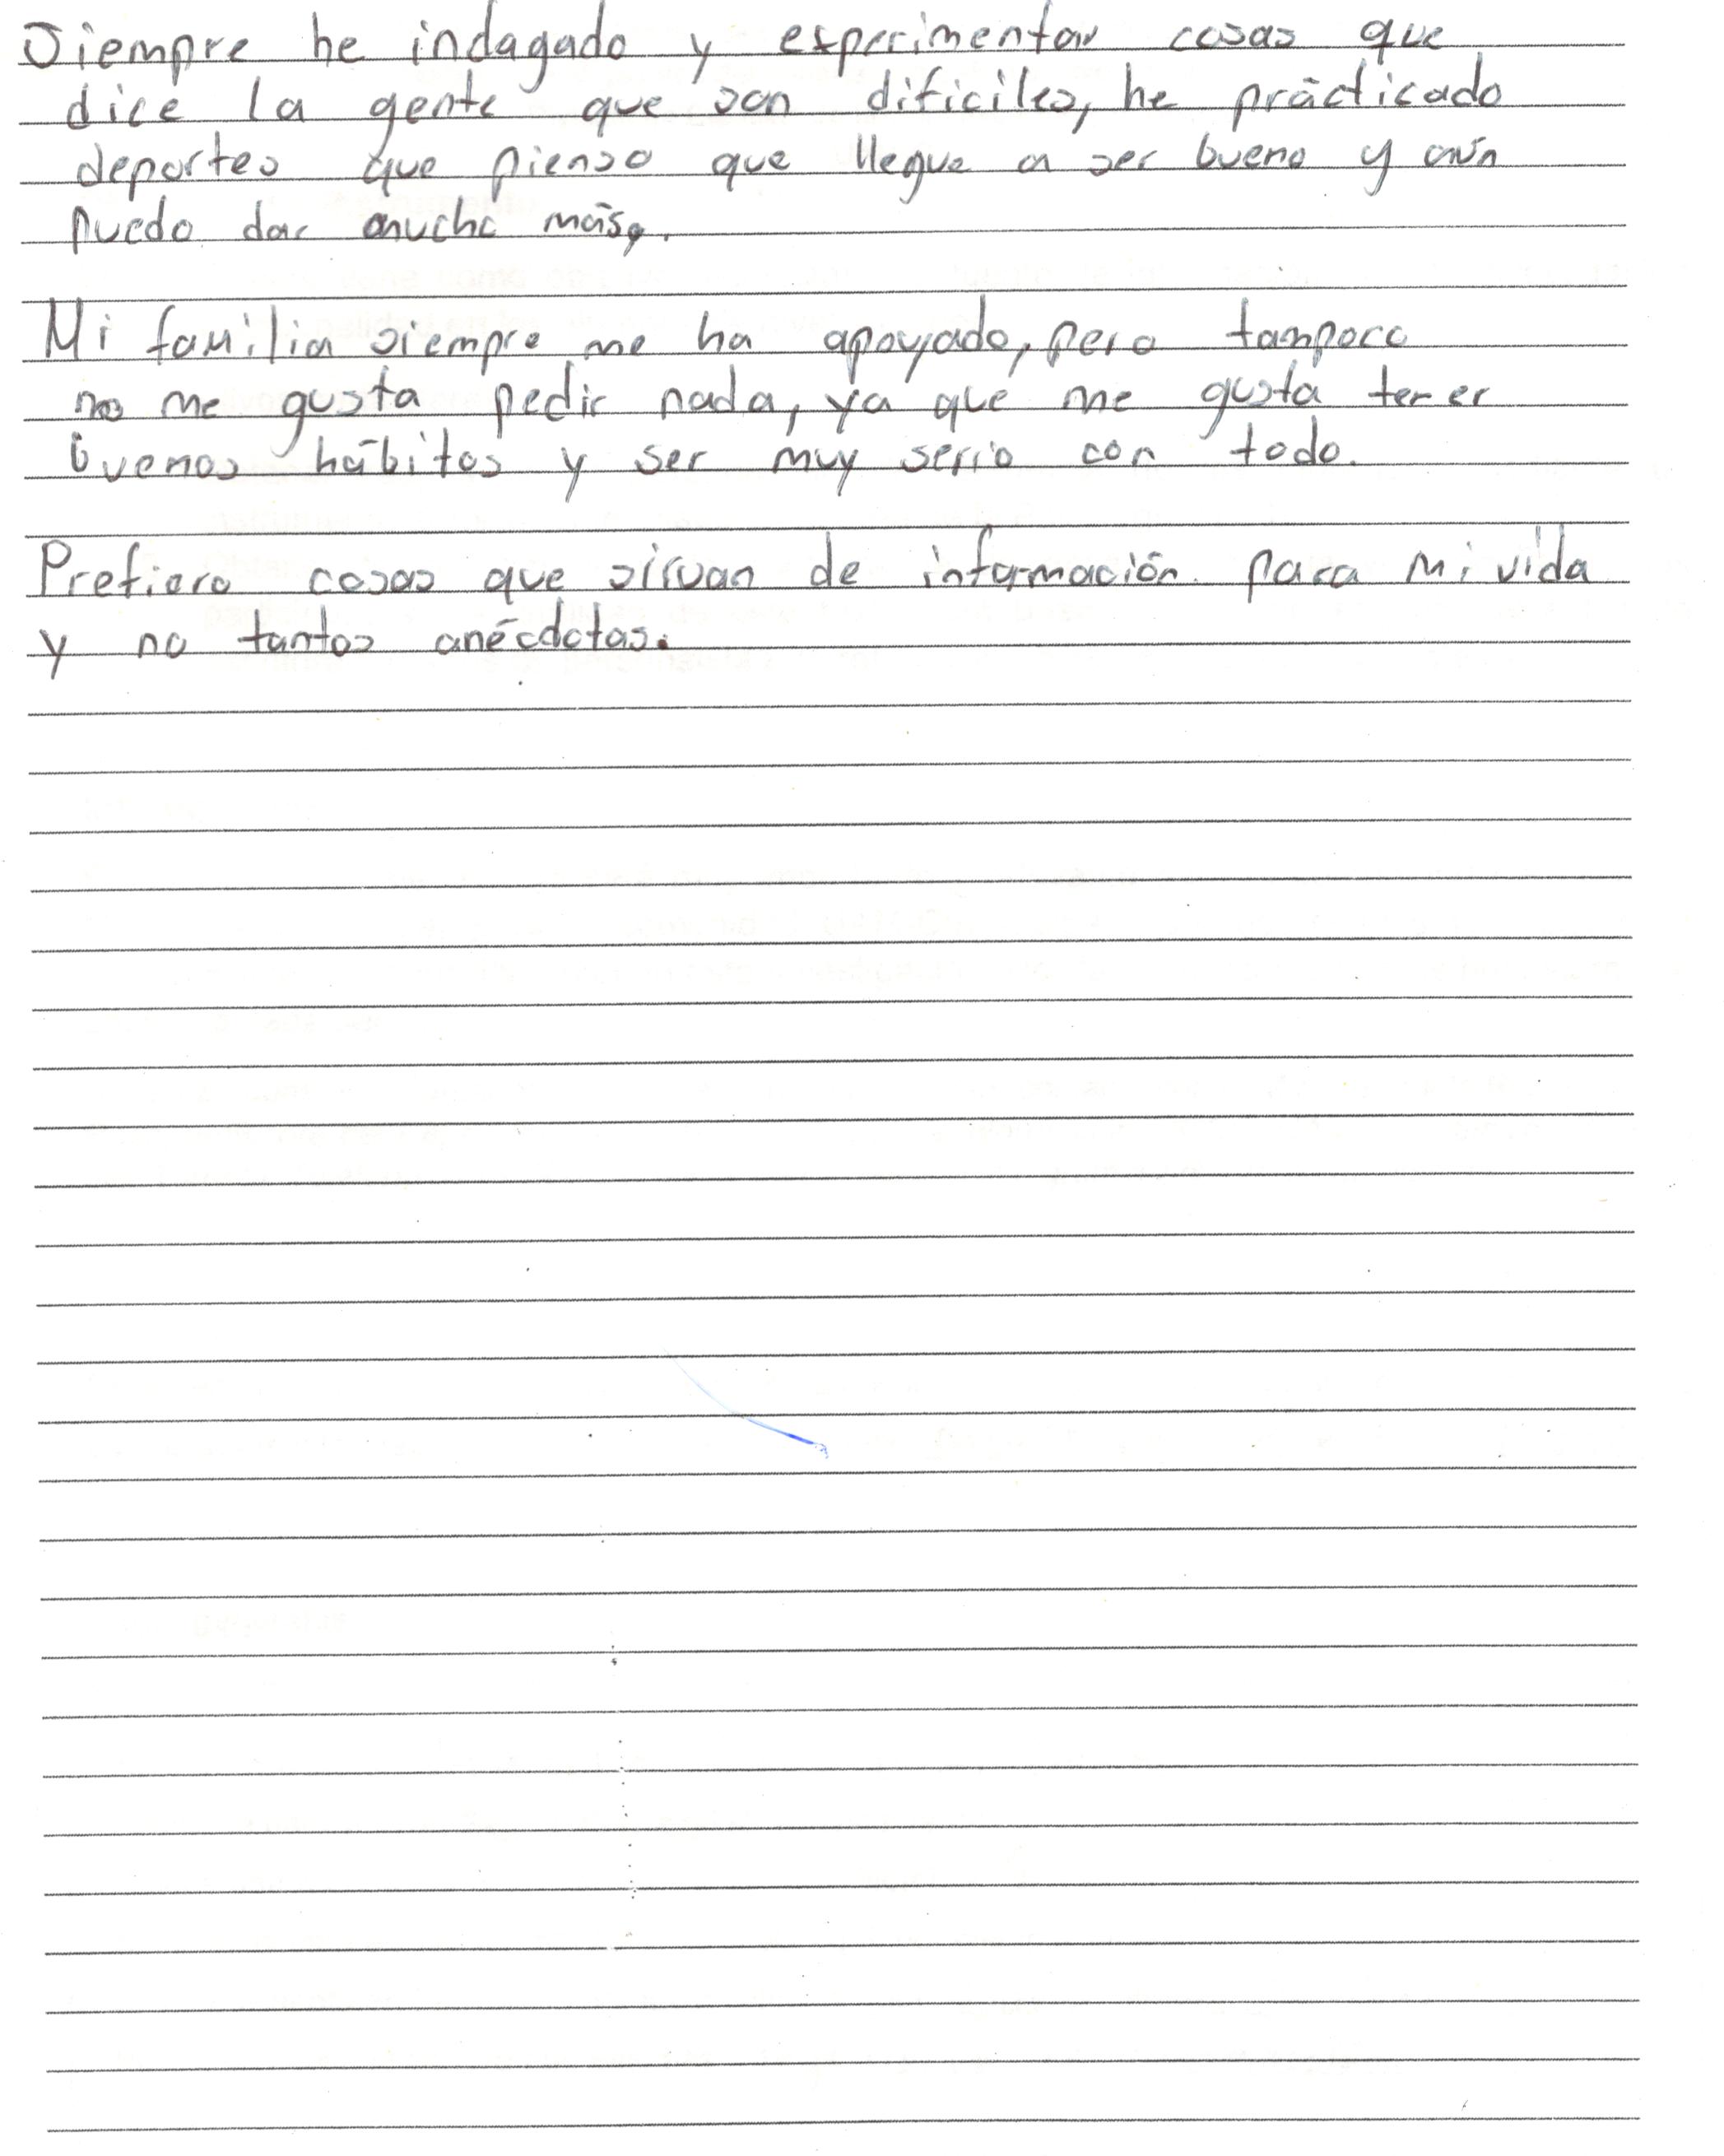 Siempre he indagado y experimentar cosas que
dice la gente que son dificiles, he prácticado
deportes que pienso que llegue a ser bueno y aún
puedo dar mucho más.
Mi familia siempre me ha apoyado, pero tampoco
no me gusta pedir nada, ya que me gusta tener
buenos hábitos y ser muy serio con todo.
Prefiero cosas que sirvan de información para mi vida
y no tantos anécdotas.